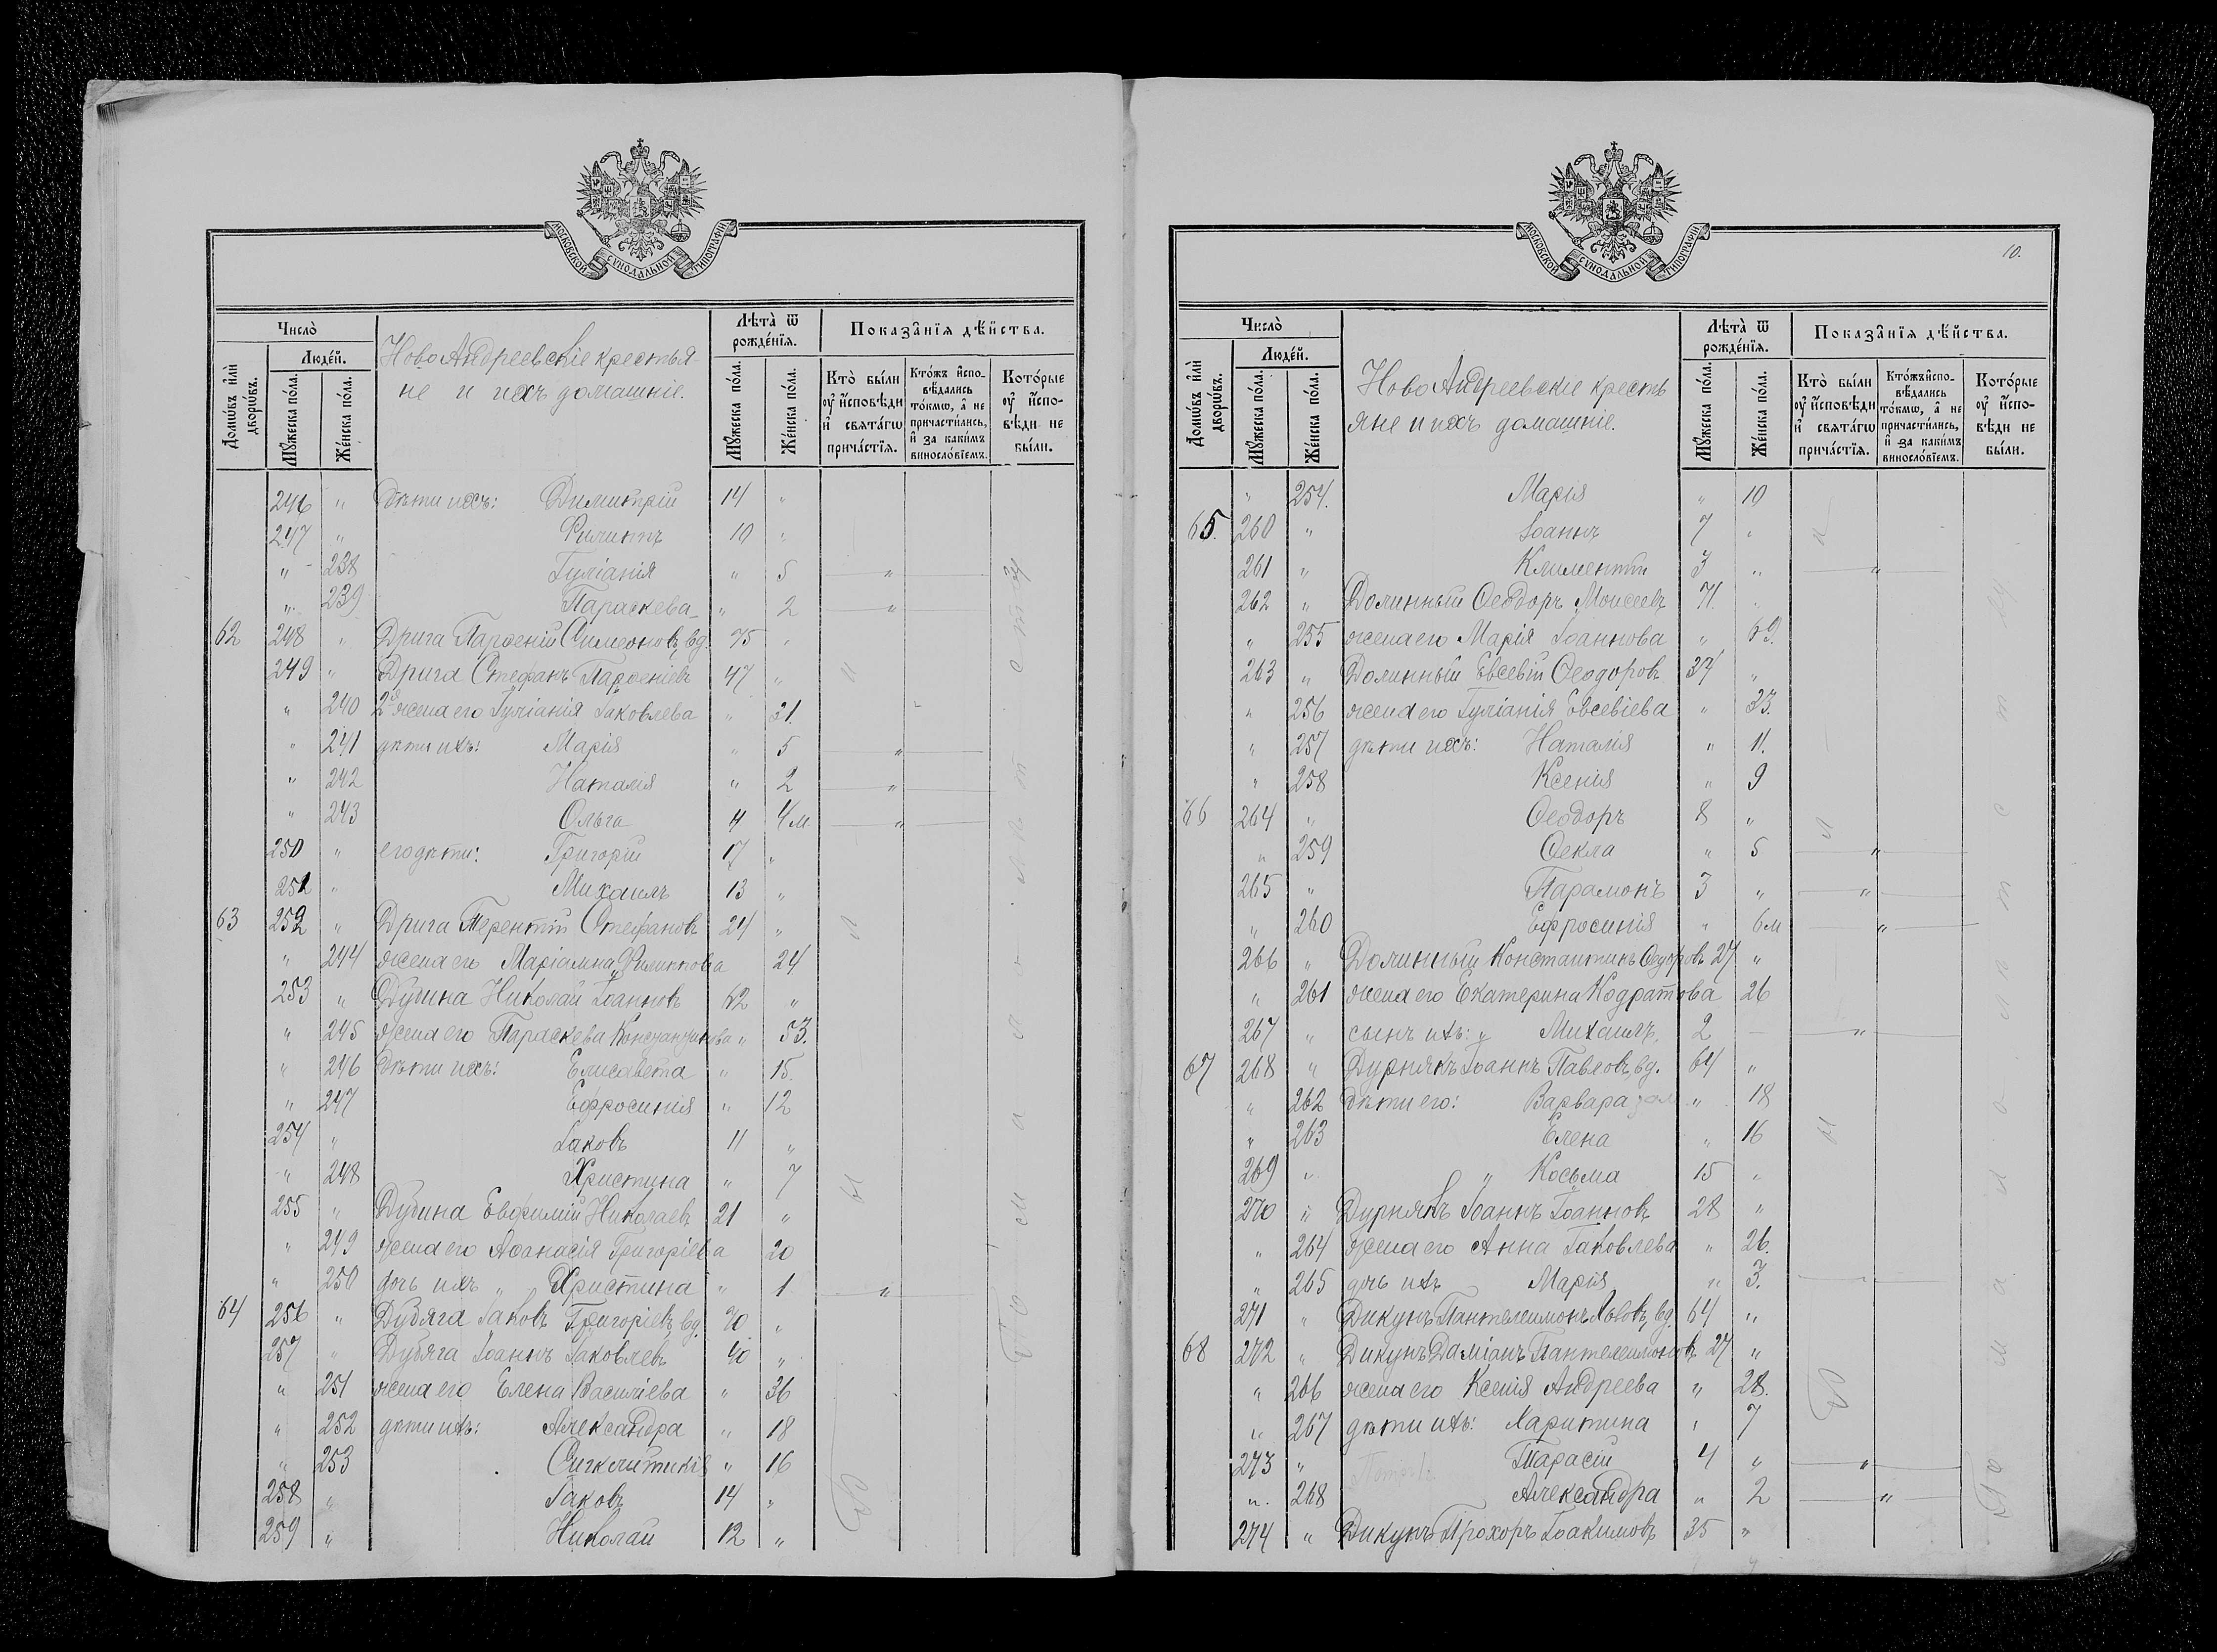 МОСКОВСКОЙ СУНОДАЛЬНОЙ ТИПОГРАФІИ
Число̀
Людéй.
Домѡ́въ и҆лѝ дворѡ́въ.
Мꙋ́жеска по́ла.
Же́нска по́ла.
НовоАндреевскіе крестья
не и ихъ домашніе.
Лѣ́та ѿ рожде́нїѧ.
Мꙋ́жеска по́ла.
Же́нска по́ла.
Показа̂нїѧ дѣ́йства.
Кто̀ бы́ли оу҆ и҆́сповѣди и҆ свѧта́гѡ прича́стїѧ.
Кто́жъ и҆спо-вѣ́дались то́кмѡ, а҆ не причасти́лись, и҆ за каки́мъ винослόвїемъ.
Кото́рые оу҆ и҆́спо-вѣди не бы́ли.
246 " дѣти ихъ: Димитрій 14 "
247 " Филиппъ 10 "
" 238 Іуліанія " 5 "
" 239 Параскева " 2 "
62 248 " Дрига Парѳеній Симеоновъ, вд. 75 "
249 " Дрига Стефанъ Парѳеніевъ 47 "
" 240 2я жена его Іуліанія Іаковлева " 31.
" 241 дѣти ихъ: Марія " 5 "
" 242 Наталія " 2 "
" 243 Ольга " 4 м. "
250 " его дѣти: Григорій 17 "
251 " Михаилъ 13 "
63 252 " Дрига Терентій Стефановъ 24 "
" 244 жена его Маріамна Филиппова 24
253 " Дубина Николай Іоанновъ 62 "
" 245 жена его Параскева Константинова " 53.
" 246 дѣти ихъ: Елисавета " 15.
" 247 Ефросинія " 12
254 " Іаковъ 11 "
" 248 Христина " 7
255 " Дубина Евѳимій Николаевъ 21 "
" 249 жена его Аѳанасія Григоріева 20
" 250 дочь ихъ " Христина " 1 "
64 256 " Дубяга Іаковъ Григоріевъ вд. 70 "
257 " Дубяга Іоаннъ Іаковлевъ 40 "
" 251 жена его Елена Василіева " 36
" 252 дѣти ихъ: Александра " 18
" 253 Сигклитикія " 16
258 " Іаковъ 14 "
259 " Николай 12 "
МОСКОВСКОЙ СУНОДАЛЬНОЙ ТИПОГРАФІИ
10.
Число̀
Людéй.
Домѡ́въ и҆лѝ дворѡ́въ.
Мꙋ́жеска по́ла.
Же́нска по́ла.
НовоАндреевскіе кресть
яне и ихъ домашніе.
Лѣ́та ѿ рожде́нїѧ.
Мꙋ́жеска по́ла.
Же́нска по́ла.
Показа̂нїѧ дѣ́йства.
Кто̀ бы́ли оу҆ и҆́сповѣди и҆ свѧта́гѡ прича́стїѧ.
Кто́жъ и҆спо-вѣ́дались то́кмѡ, а҆ не причасти́лись, и҆ за каки́мъ винослόвїемъ.
Кото́рые оу҆ и҆́спо-вѣди не бы́ли.
" 254. Марія " 10
65. 260 " Іоаннъ 7 "
261 " Климентъ 3 " "
262 " Долинный Ѳеодоръ Моисеевъ 71. "
" 255 жена его Марія Іоаннова " 69.
263 " Долинный Евсевій Ѳеодоровъ 37 "
" 256 жена его Іуліанія Евсевіева " 33.
" 257 дѣти ихъ: Наталія " 11.
" 258 Ксенія " 9
66 264 " Ѳеодоръ 8 "
" 259 Ѳекла " 5 "
265 " Парамонъ 3 " "
" 260 Ефросинія " 6 м "
266 " Долинный Константинъ Ѳеодоровъ 27 "
" 261 жена его Екатерина Кодратова 26
267 " сынъ ихъ: " Михаилъ, 2 "
67 268 " Дурнякъ Іоаннъ Павловъ, вд. 64 "
" 262 дѣти его: Варвара " 18
" 263 Елена " 16
269 " " Косьма 15 "
270 " Дурнякъ Іоаннъ Іоанновъ 28 "
" 264 жена его Анна Іаковлева " 26.
" 265 дочь ихъ Марія " 3. "
271 " Дикунъ Пантелеимонъ Львовъ, вд. 64 "
68 272 " Дикунъ Даміанъ Пантелеимоновъ 27 "
" 266 жена его Ксенія Андреева " 28.
" 267 дѣти ихъ: Харитина " 7
273 " Тарасій 4 " "
" 268 Александра " 2 "
274 " Дикунъ Прохоръ Іоакимовъ 35 "